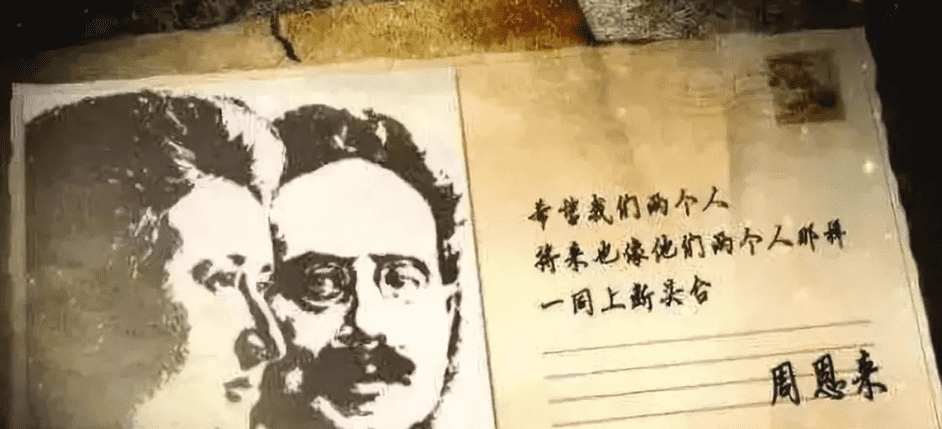 希望我们两个人
将来也像他们两个人那样
一同上断头台
周恩来